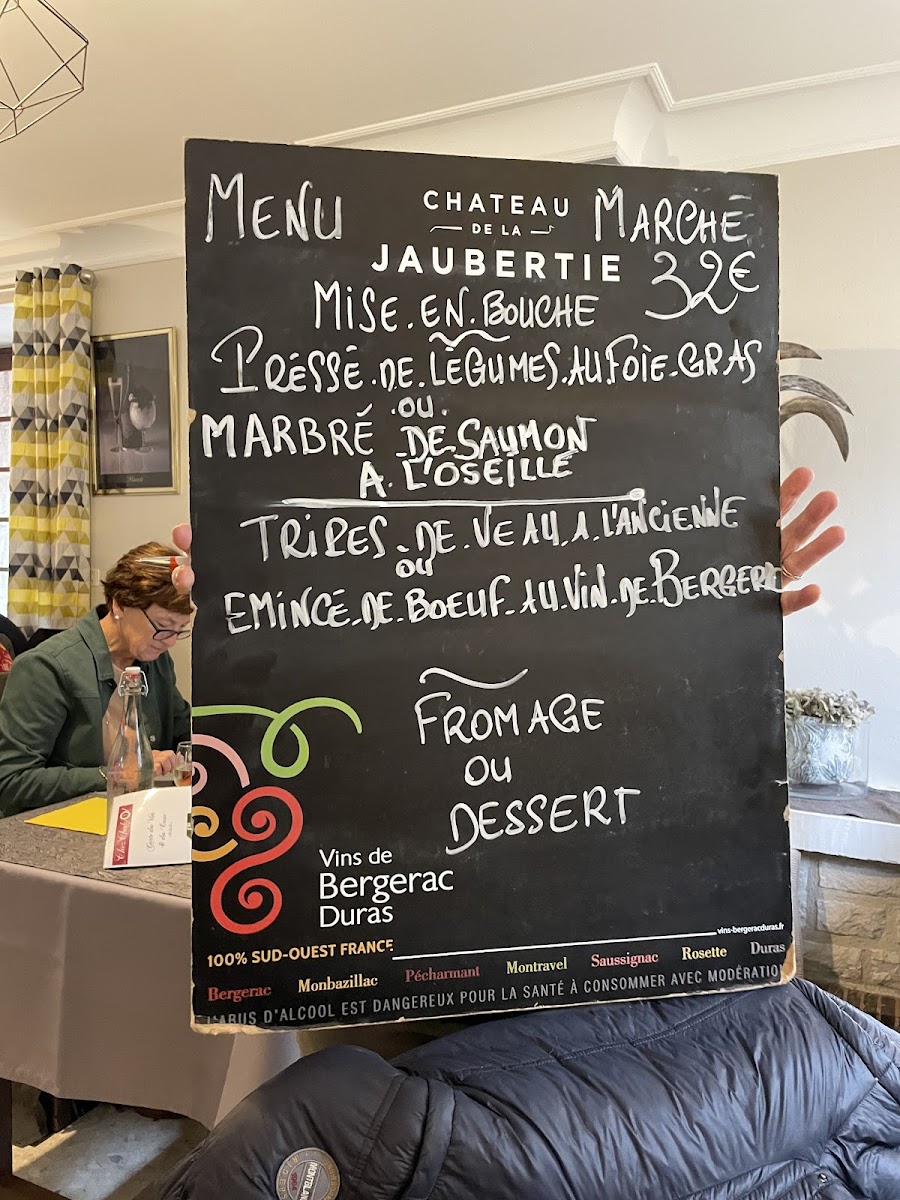 MENU
CHATEAU
DE LA
JAUBERTIE
MARCHÉ
32€
MISE.EN.BOUCHE
PRESSÉ.DE.LÉGUMES.AU.FOIE-GRAS
.OU.
MARBRÉ DE.SAUMON
A.L'OSEILLE
TRIPES.DE.VEAU.A.L'ANCIENNE
OU
EMINCÉ.DE.BOEUF.AU.VIN.DE.BERGERAC
FROMAGE
OU
DESSERT
Vins de
Bergerac
Duras
vins-bergeracduras.fr
100% SUD-OUEST FRANCE
Bergerac Monbazillac Pécharmant Montravel Saussignac Rosette Duras
L'ABUS D'ALCOOL EST DANGEREUX POUR LA SANTÉ À CONSOMMER AVEC MODÉRATION